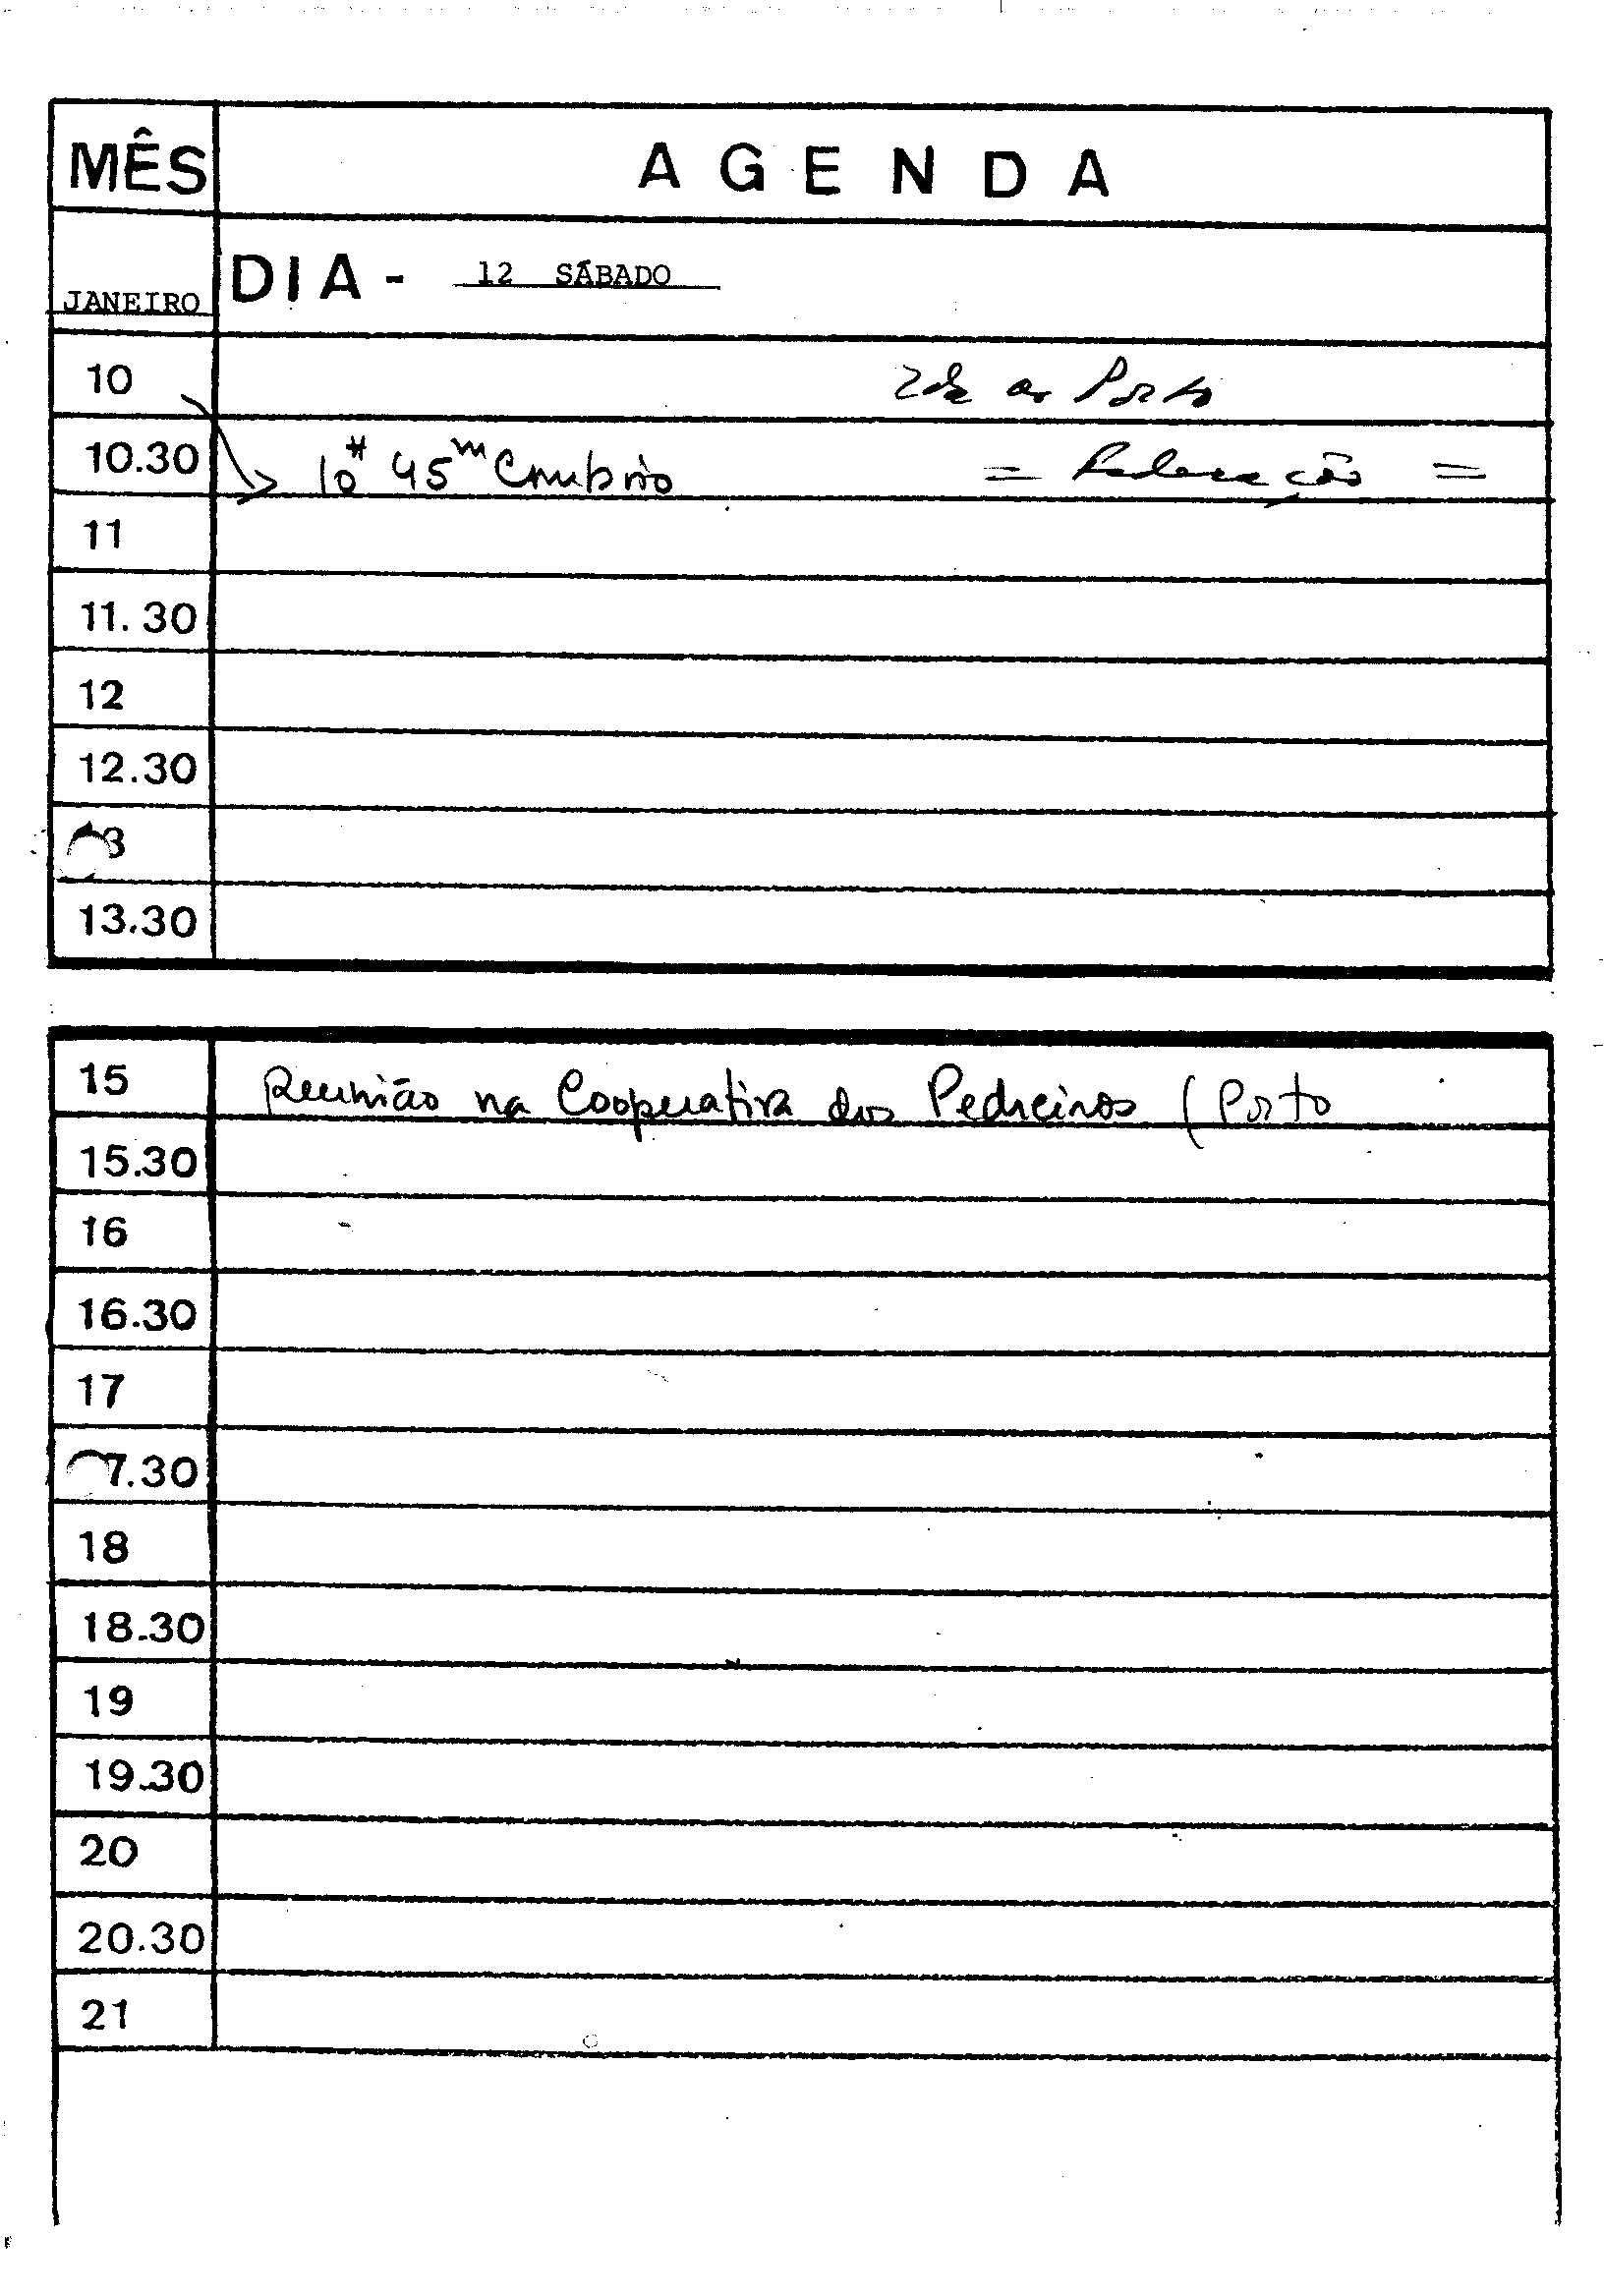 MÊS AGENDA
JANEIRO DIA - 12 SÁBADO
10 ao Porto
10.30 10H 45m Comboio = Federação =
11
11.30
12
12.30
3
13.30
15 Reunião na Cooperativa dos Pedreiros (Porto
15.30
16
16.30
17
7.30
18
18.30
19
19.30
20
20.30
21